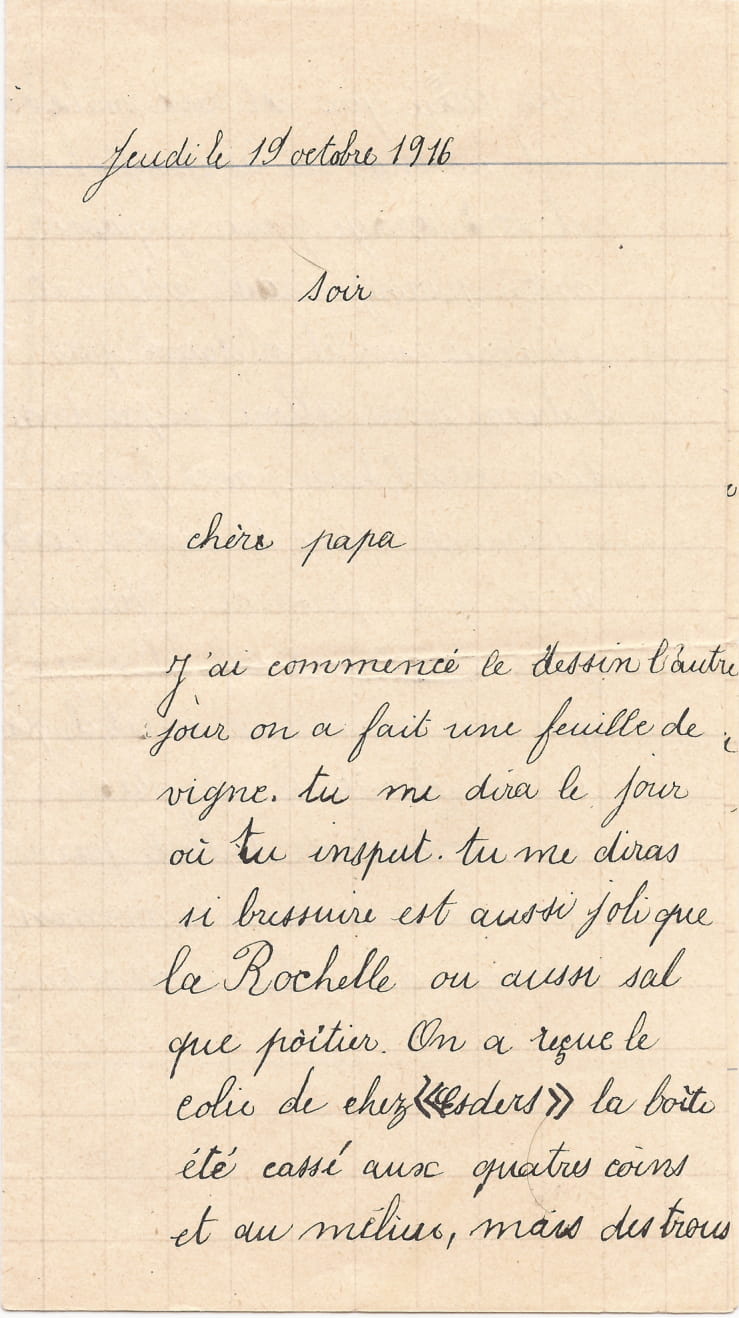 Jeudi le 19 octobre 1916
soir
chère papa
J'ai commencé le dessin l'autre
jour on a fait une feuille de
vigne. tu me dira le jour
où tu insput. tu me diras
si bressuire est aussi joli que
la Rochelle ou aussi sal
que poitier. On a reçue le
colie de chez «Esders» la boîte
été cassé aux quatres coins
et au mélieu, mais des trous